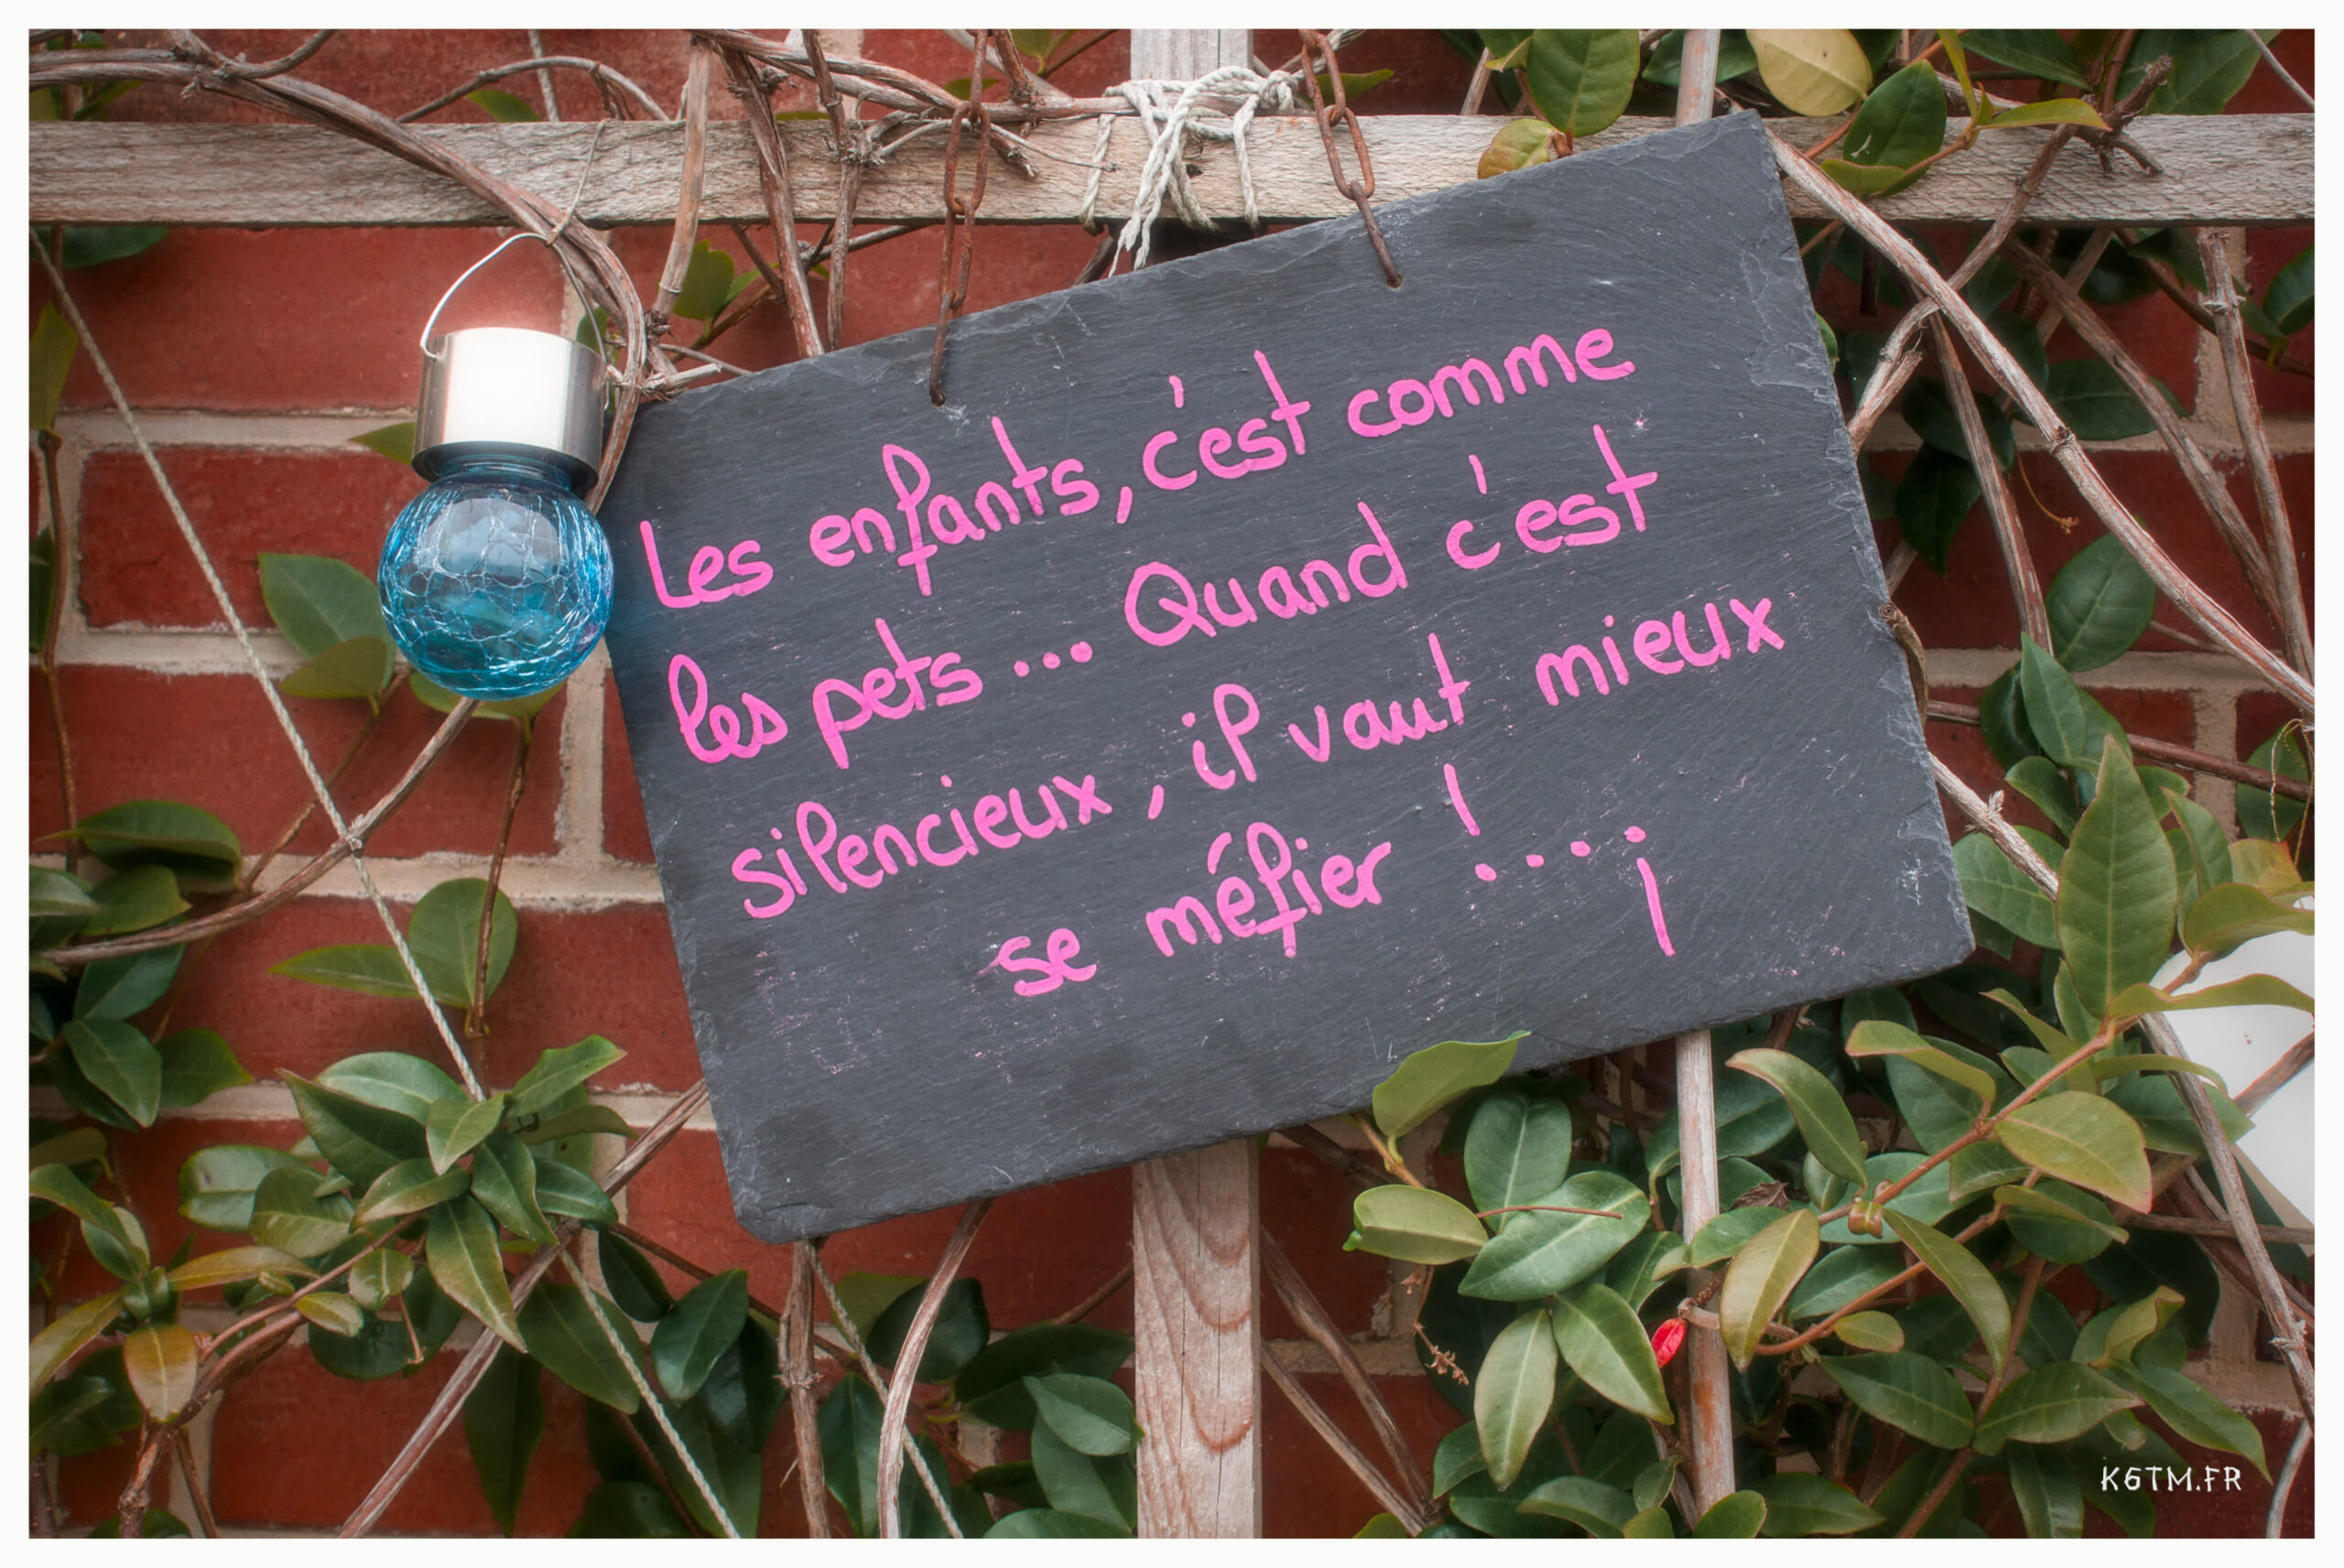 Les enfants, c'est comme
les pets... Quand c'est
silencieux, il vaut mieux
se méfier !...¡
K6TM.FR